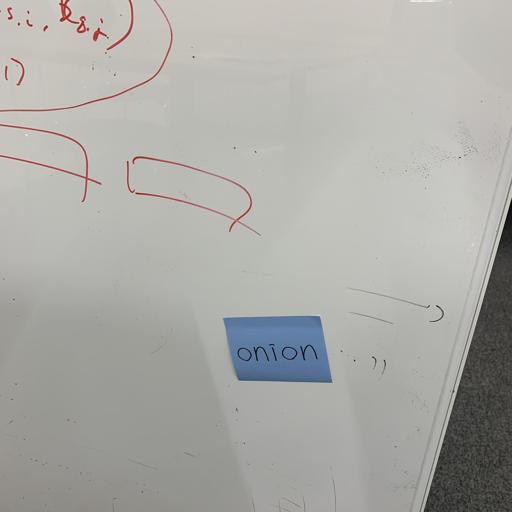 s.i, k s.j)
1)
onion